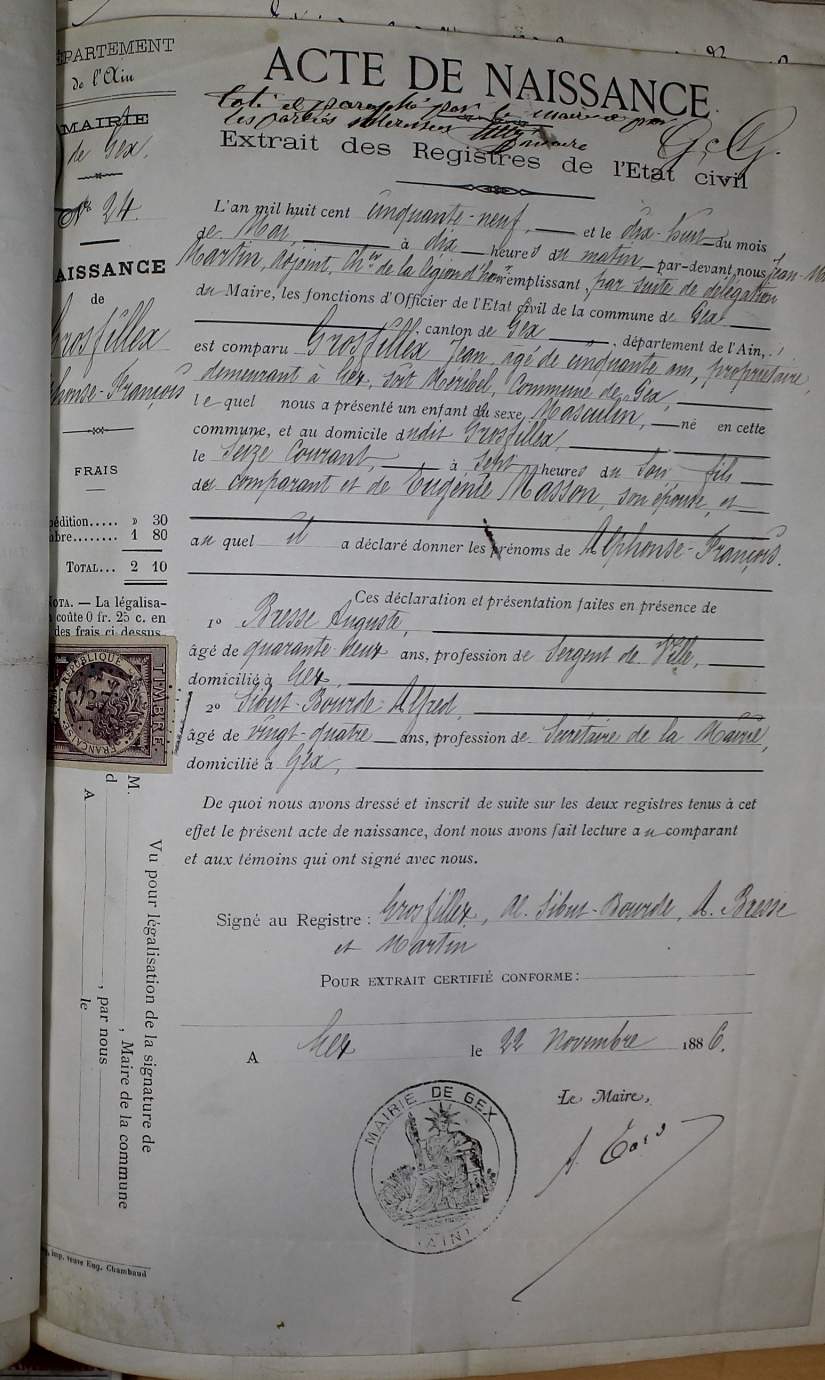 DÉPARTEMENT
de l'Ain
MAIRIE
de Gex.
N° 24.
NAISSANCE
de
Grosfillex
Alphonse-François
FRAIS
pédition..... » 30
bre........ 1 80
TOTAL... 2 10
NOTA. — La légalisa-
coûte 0 fr. 25 c. en
des frais ci dessus
RÉPUBLIQUE FRANÇAISE
TIMBRE
Vu pour légalisation de la signature de
M. , Maire de la commune
d , par nous
A le
imp. veuve Eug. Chambaud
ACTE DE NAISSANCE
Coté et paraphé par le maire
les parties
G. G.
Extrait des Registres de l'Etat civil
L'an mil huit cent cinquante-neuf, et le dix-huit du mois
de Mai, à dix heures du matin, par-devant nous Jean-M
Martin, adjoint, Cher de la légion d'honr remplissant, par suite de délégation
du Maire, les fonctions d'Officier de l'Etat civil de la commune de Gex
canton de Gex, département de l'Ain,
est comparu Grosfillex Jean, agé de cinquante ans, propriétaire,
demeurant à Gex, soit Méribel, Commune de Gex,
lequel nous a présenté un enfant du sexe Masculin, né en cette
commune, et au domicile dudit Grosfillex,
le Seize Courant, à Sept heures du Soir fils
des comparant et de Eugénie Masson, son épouse, et
auquel il a déclaré donner les prénoms de Alphonse-François.
Ces déclaration et présentation faites en présence de
1° Bresse Auguste,
âgé de quarante-deux ans, profession de Sergent de Ville,
domicilié à Gex,
2° Sibut-Bourde Alfred,
âgé de vingt-quatre ans, profession de Secrétaire de la Mairie,
domicilié à Gex,
De quoi nous avons dressé et inscrit de suite sur les deux registres tenus à cet
effet le présent acte de naissance, dont nous avons fait lecture au comparant
et aux témoins qui ont signé avec nous.
Signé au Registre : Grosfillex, Al. Sibut-Bourde, A. Bresse
et Martin
POUR EXTRAIT CERTIFIÉ CONFORME :
A Gex le 22 Novembre 1886.
Le Maire,
MAIRIE DE GEX
(AIN)